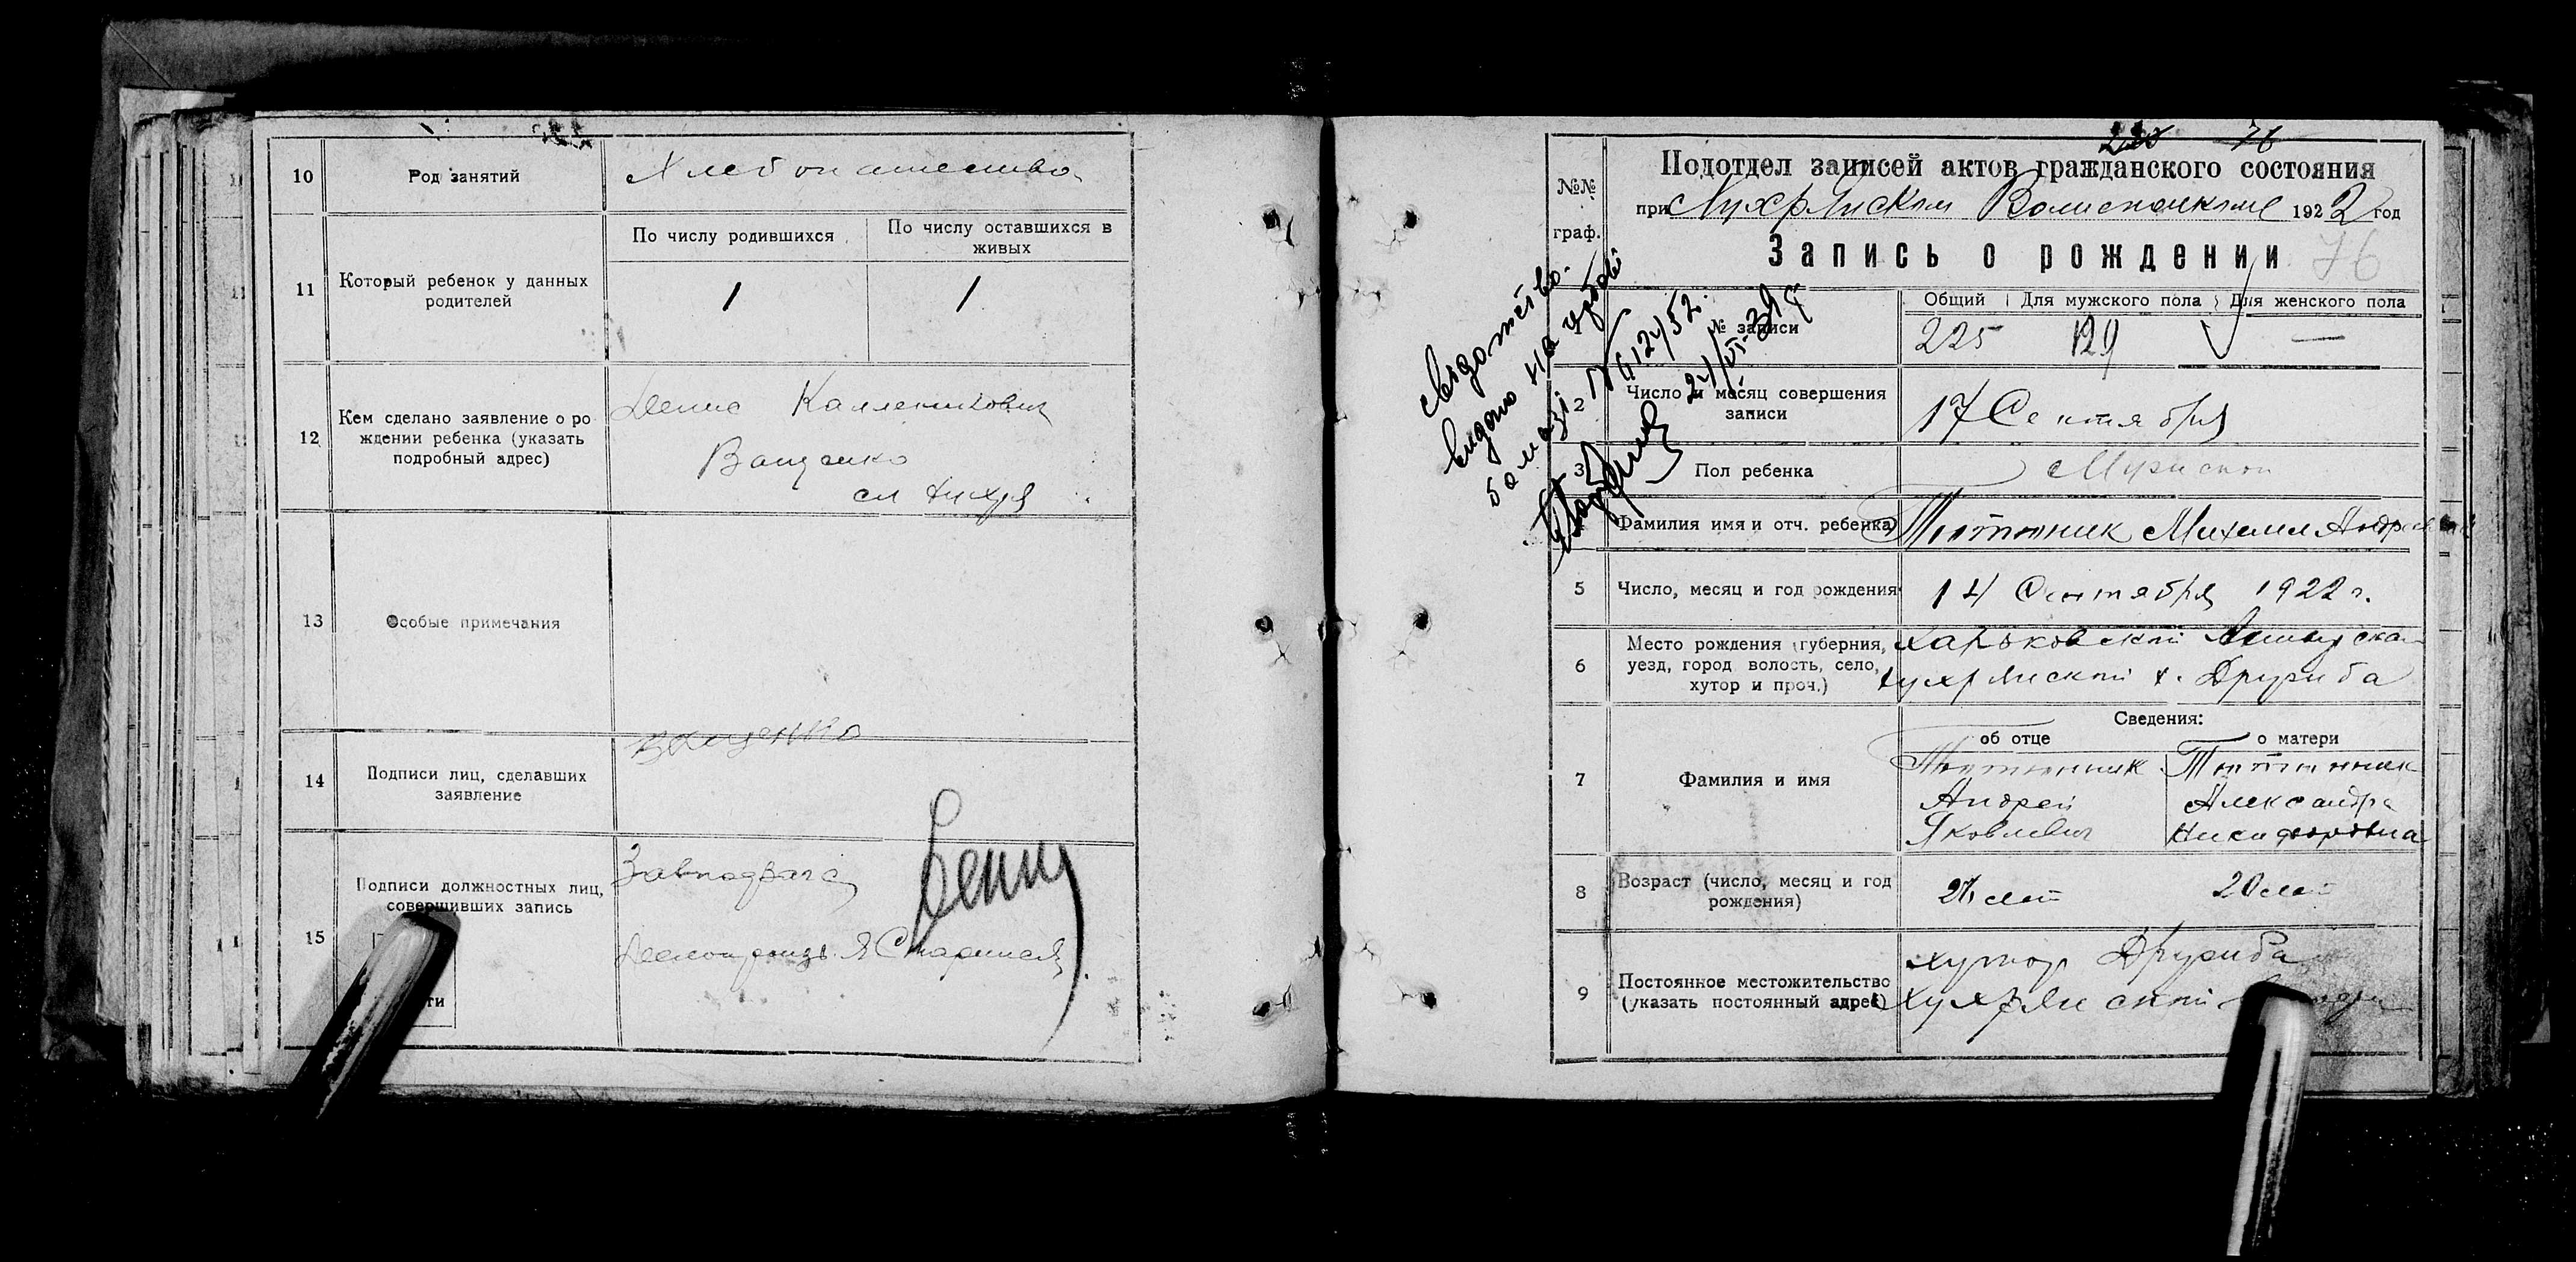 10 Род занятий Хлебопашество
11 Который ребенок у данных родителей
По числу родившихся По числу оставшихся в живых
1 1
12 Кем сделано заявление о ро
ждении ребенка (указать
подробный адрес)
Денис Каленикович
Ващенко
сл
13 Особые примечания
14 Подписи лиц, сделавших
заявление
Ващенко
15 Подписи должностных лиц,
совершивших запись
Завподзагс
ти
225 76
№№
граф.
Подотдел записей актов гражданского состояния
при 1922 год
Запись о рождении 76
свідоцтво
видано на
24/VI-39
1 № записи
Общий Для мужского пола Для женского пола
225 129 —
2 Число и месяц совершения
записи
17 Сентября
3 Пол ребенка Мужской
Фамилия имя и отч. ребенка Тютюнник Михаил Андреевич
5 Число, месяц и год рождения 14 Сентября 1922 г.
6 Место рождения (губерния,
уезд, город волость, село,
хутор и проч.)
Харьковской
х. Дружба
Сведения:
об отце о матери
7 Фамилия и имя
Тютюнник Тютюнник
Андрей Александра
Яковлевич Никифоровна
8 Возраст (число, месяц и год
рождения)
лет 20 лет
9 Постоянное местожительство
(указать постоянный адрес)
хутор Дружба